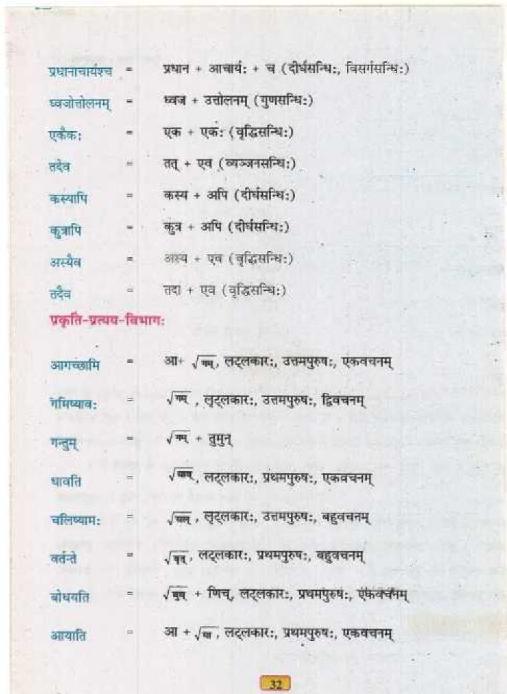 प्रधानाचार्यश्च = प्रधान + आचार्य: + च (दीर्घसन्धि:, विसर्गसन्धि:)
ध्वजोत्तोलनम् = ध्वज + उत्तोलनम् (गुणसन्धि:)
एकैक: = एक + एक: (वृद्धिसन्धि:)
तदेव = तत् + एव (व्यञ्जनसन्धि:)
कस्यापि = कस्य + अपि (दीर्घसन्धि:)
कुत्रापि = कुत्र + अपि (दीर्घसन्धि:)
अस्यैव = अस्य + एव (वृद्धिसन्धि:)
तदैव = तदा + एव (वृद्धिसन्धि:)
प्रकृति-प्रत्यय-विभाग:
आगच्छामि = आ+ √गम्, लट्लकार:, उत्तमपुरुष:, एकवचनम्
गमिष्याव: = √गम् , लृट्लकार:, उत्तमपुरुष:, द्विवचनम्
गन्तुम् = √गम् + तुमुन्
धावति = √धाव्, लट्लकार:, प्रथमपुरुष:, एकवचनम्
चलिष्याम: = √चल्, लृट्लकार:, उत्तमपुरुष:, बहुवचनम्
वर्तन्ते = √वृत्, लट्लकार:, प्रथमपुरुष:, बहुवचनम्
बोधयति = √बुध् + णिच्, लट्लकार:, प्रथमपुरुष:, एकवचनम्
आयाति = आ + √या, लट्लकार:, प्रथमपुरुष:, एकवचनम्
32